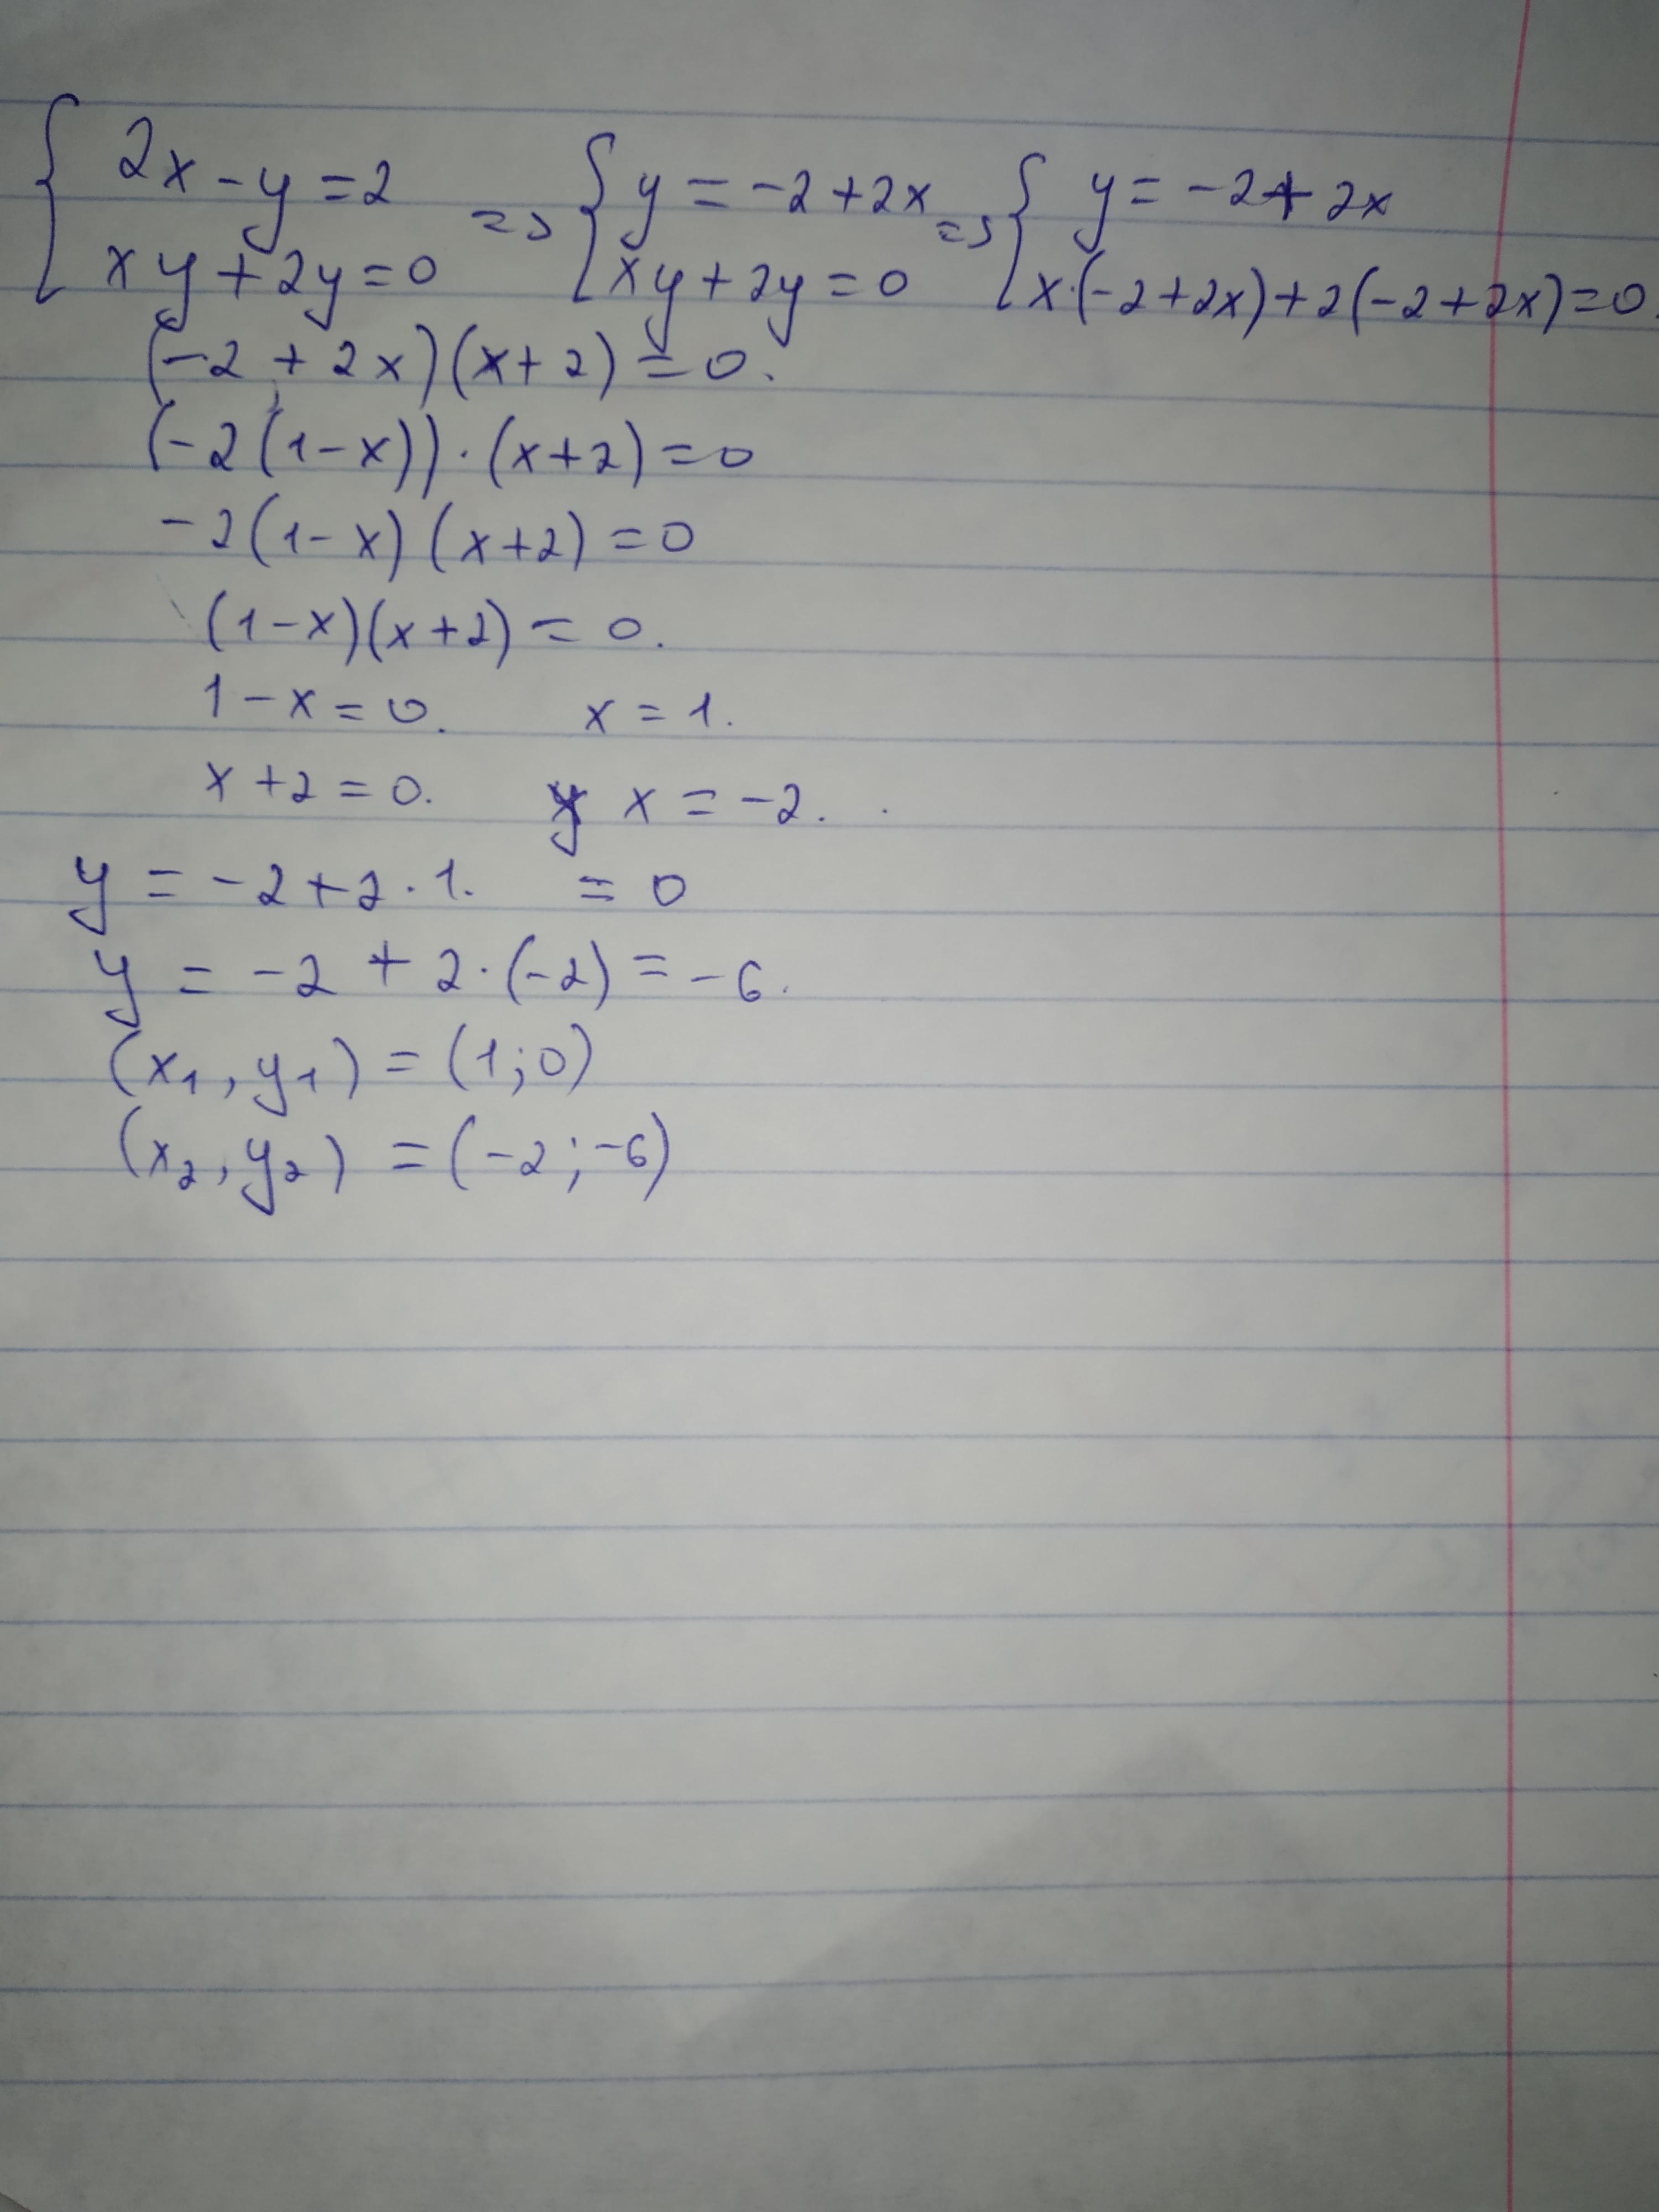 { 2x - y = 2 => { y = -2 + 2x => { y = -2 + 2x
xy + 2y = 0 xy + 2y = 0 x·(-2 + 2x) + 2(-2 + 2x) = 0.
(-2 + 2x)(x + 2) = 0.
(-2(1 - x))·(x + 2) = 0
-2(1 - x)(x + 2) = 0
(1 - x)(x + 2) = 0.
1 - x = 0. x = 1.
x + 2 = 0. x = -2.
y = -2 + 2·1. = 0
y = -2 + 2·(-2) = -6.
(x₁, y₁) = (1; 0)
(x₂, y₂) = (-2; -6)